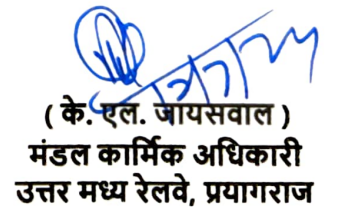 ( के. एल. जायसवाल )
मंडल कार्मिक अधिकारी
उत्तर मध्य रेलवे, प्रयागराज